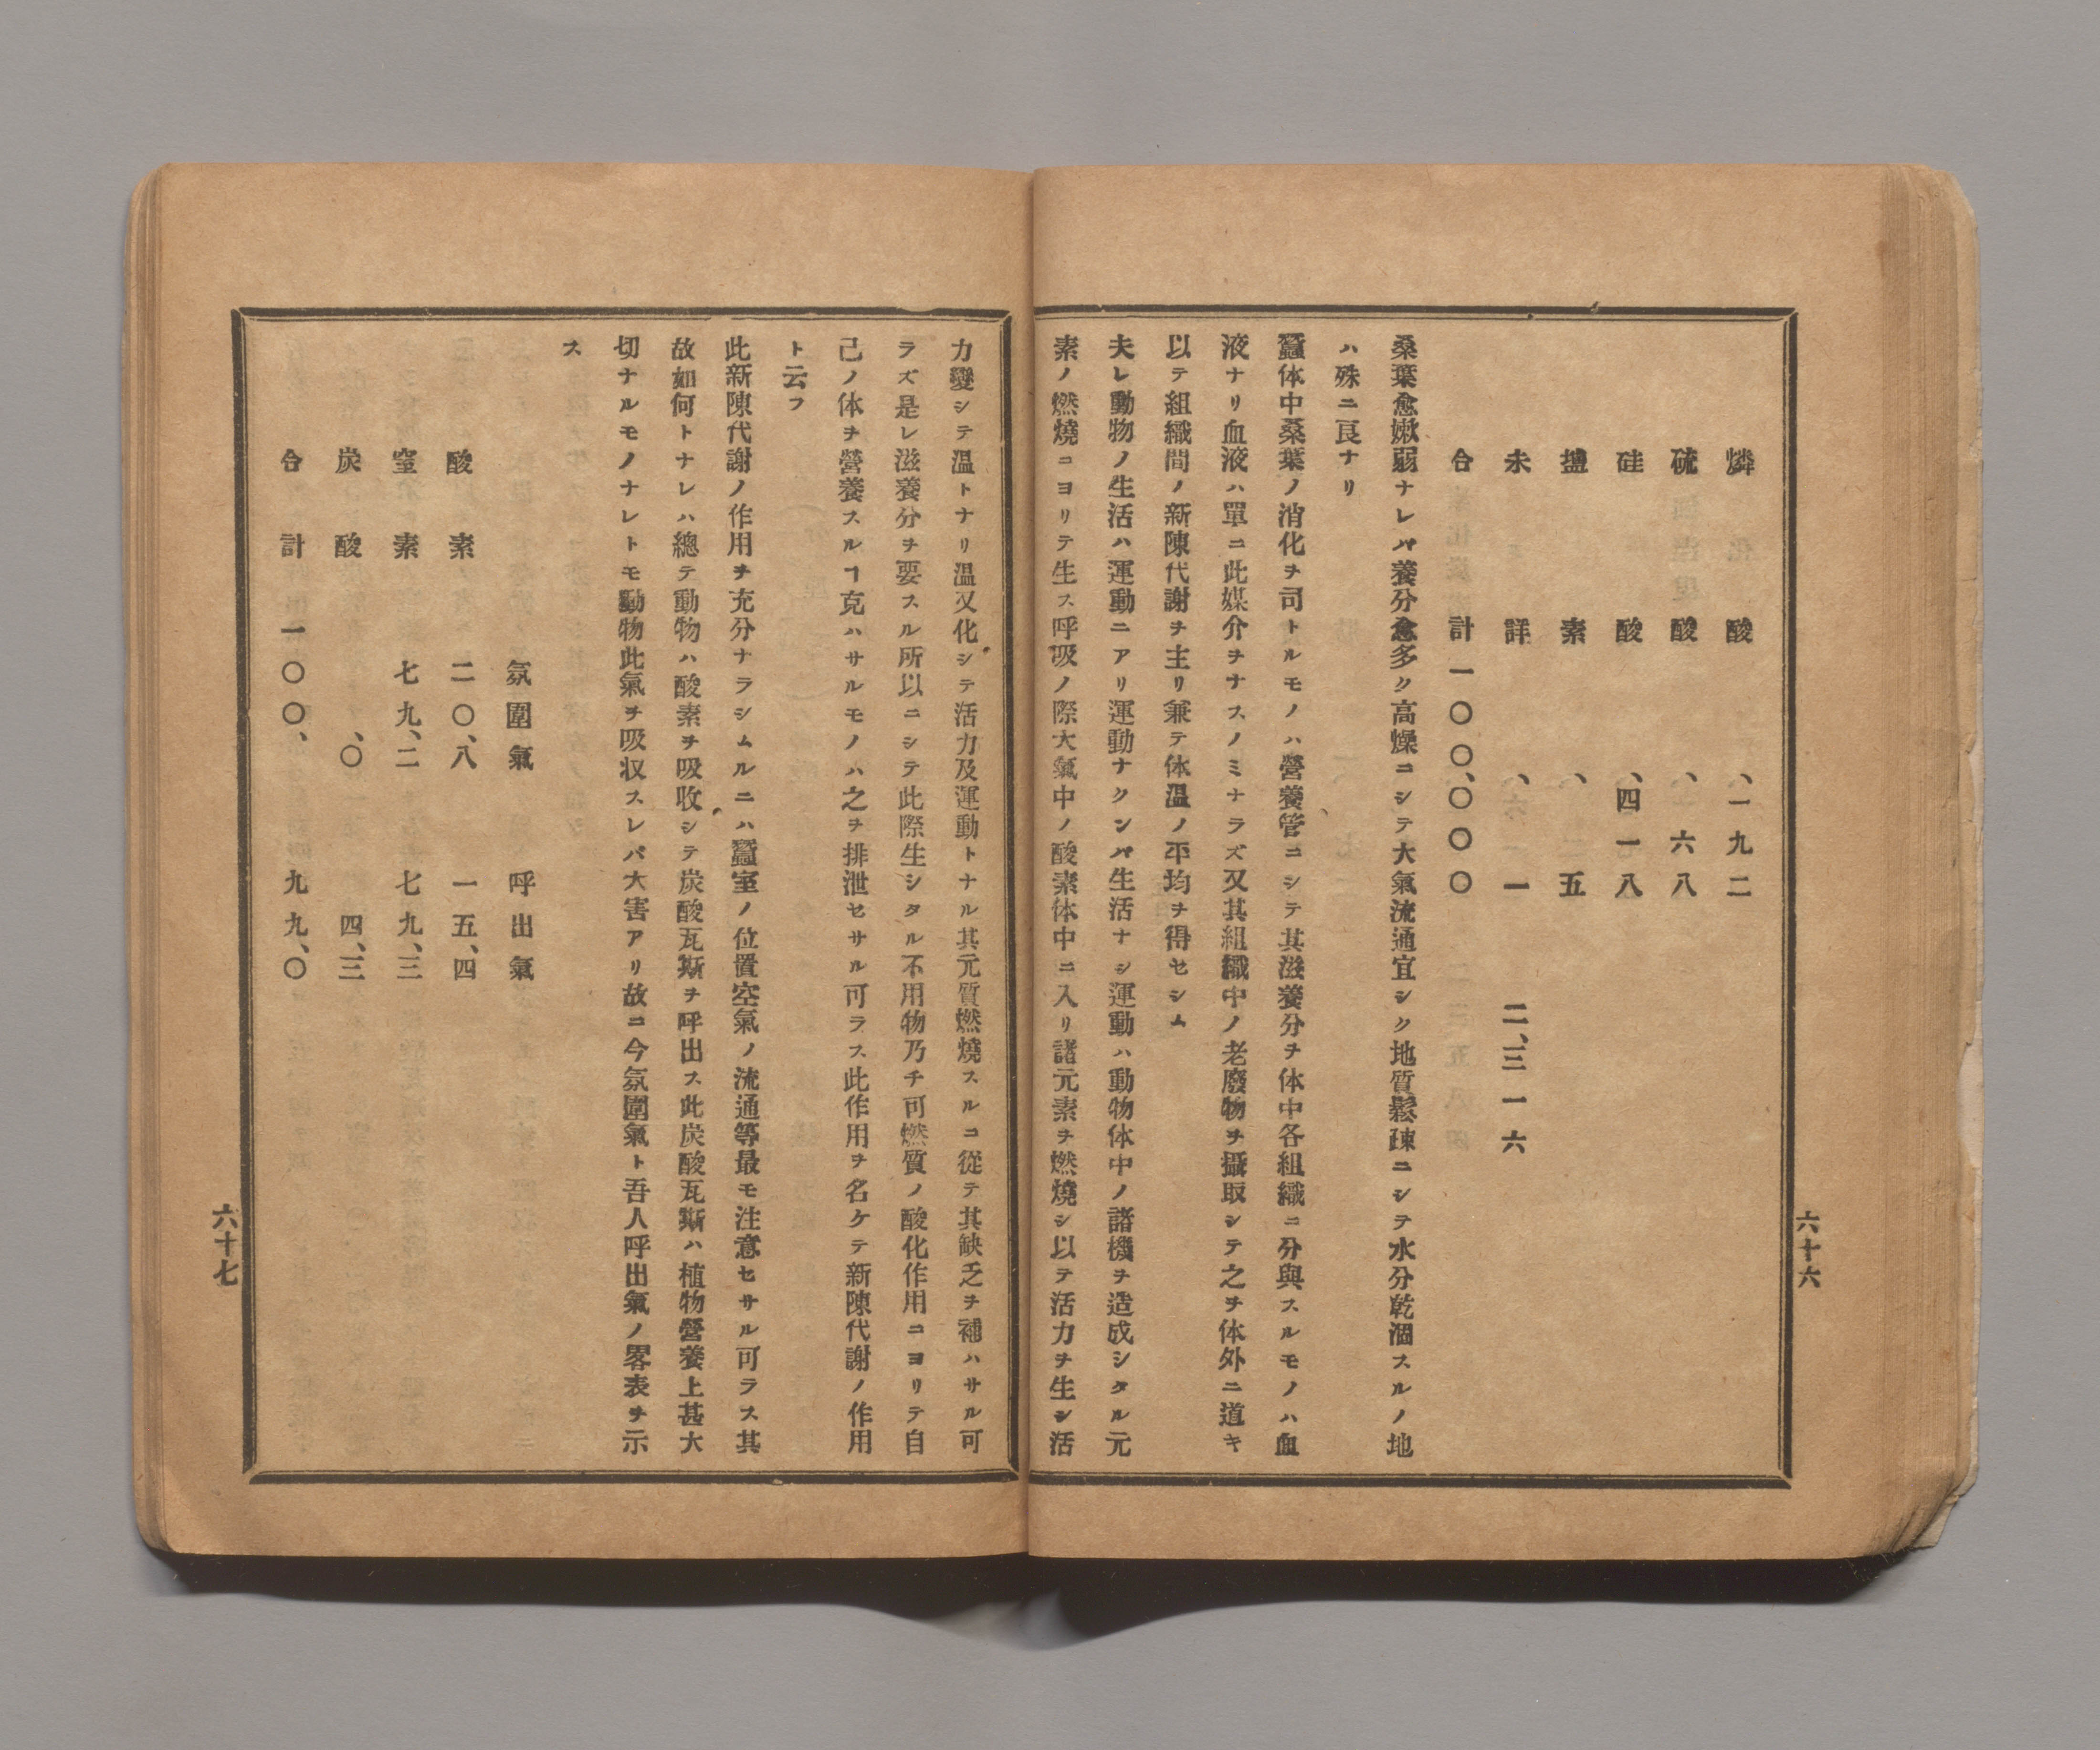 六十六
燐酸 、一九二
硫酸 、六八
硅酸 、四一八
盬素 、五
未詳 、一 二、三一六
合計 一〇〇、〇〇〇
桑葉愈嫩弱ナレバ養分愈多ク高燥ニシテ大氣流通宜シク地質鬆疎ニシテ水分乾涸スルノ地
ハ殊ニ良ナリ
蠶体中桑葉ノ消化ヲ司トルモノハ營養管ニシテ其滋養分ヲ体中各組織ニ分與スルモノハ血
液ナリ血液ハ單ニ此媒介ヲナスノミナラズ又其組織中ノ老廢物ヲ攝取シテ之ヲ体外ニ道キ
以テ組織間ノ新陳代謝ヲ主リ兼テ体溫ノ平均ヲ得セシム
夫レ動物ノ生活ハ運動ニアリ運動ナクンバ生活ナシ運動ハ動物体中ノ諸機ヲ造成シタル元
素ノ燃燒ニヨリテ生ス呼吸ノ際大氣中ノ酸素体中ニ入リ諸元素ヲ燃燒シ以テ活力ヲ生シ活
力變シテ温トナリ温又化シテ活力及運動トナル其元質燃燒スルコ從テ其缺乏ヲ補ハサル可
ラズ是レ滋養分ヲ要スル所以ニシテ此際生シタル不用物乃チ可燃質ノ酸化作用ニヨリテ自
己ノ体ヲ營養スルヿ克ハサルモノハ之ヲ排泄セサル可ラス此作用ヲ名ケテ新陳代謝ノ作用
ト云フ
此新陳代謝ノ作用ヲ充分ナラシムルニハ蠶室ノ位置空氣ノ流通等最モ注意セサル可ラス其
故如何トナレハ總テ動物ハ酸素ヲ吸收シテ炭酸瓦斯ヲ呼出ス此炭酸瓦斯ハ植物營養上甚大
切ナルモノナレトモ動物此氣ヲ吸収スレバ大害アリ故ニ今氛圍氣ト吾人呼出氣ノ畧表ヲ示
ス
氛圍氣 呼出氣
酸素 二〇、八 一五、四
窒素 七九、二 七九、三
炭酸 、〇 四、三
合計 一〇〇、 九九、〇
六十七